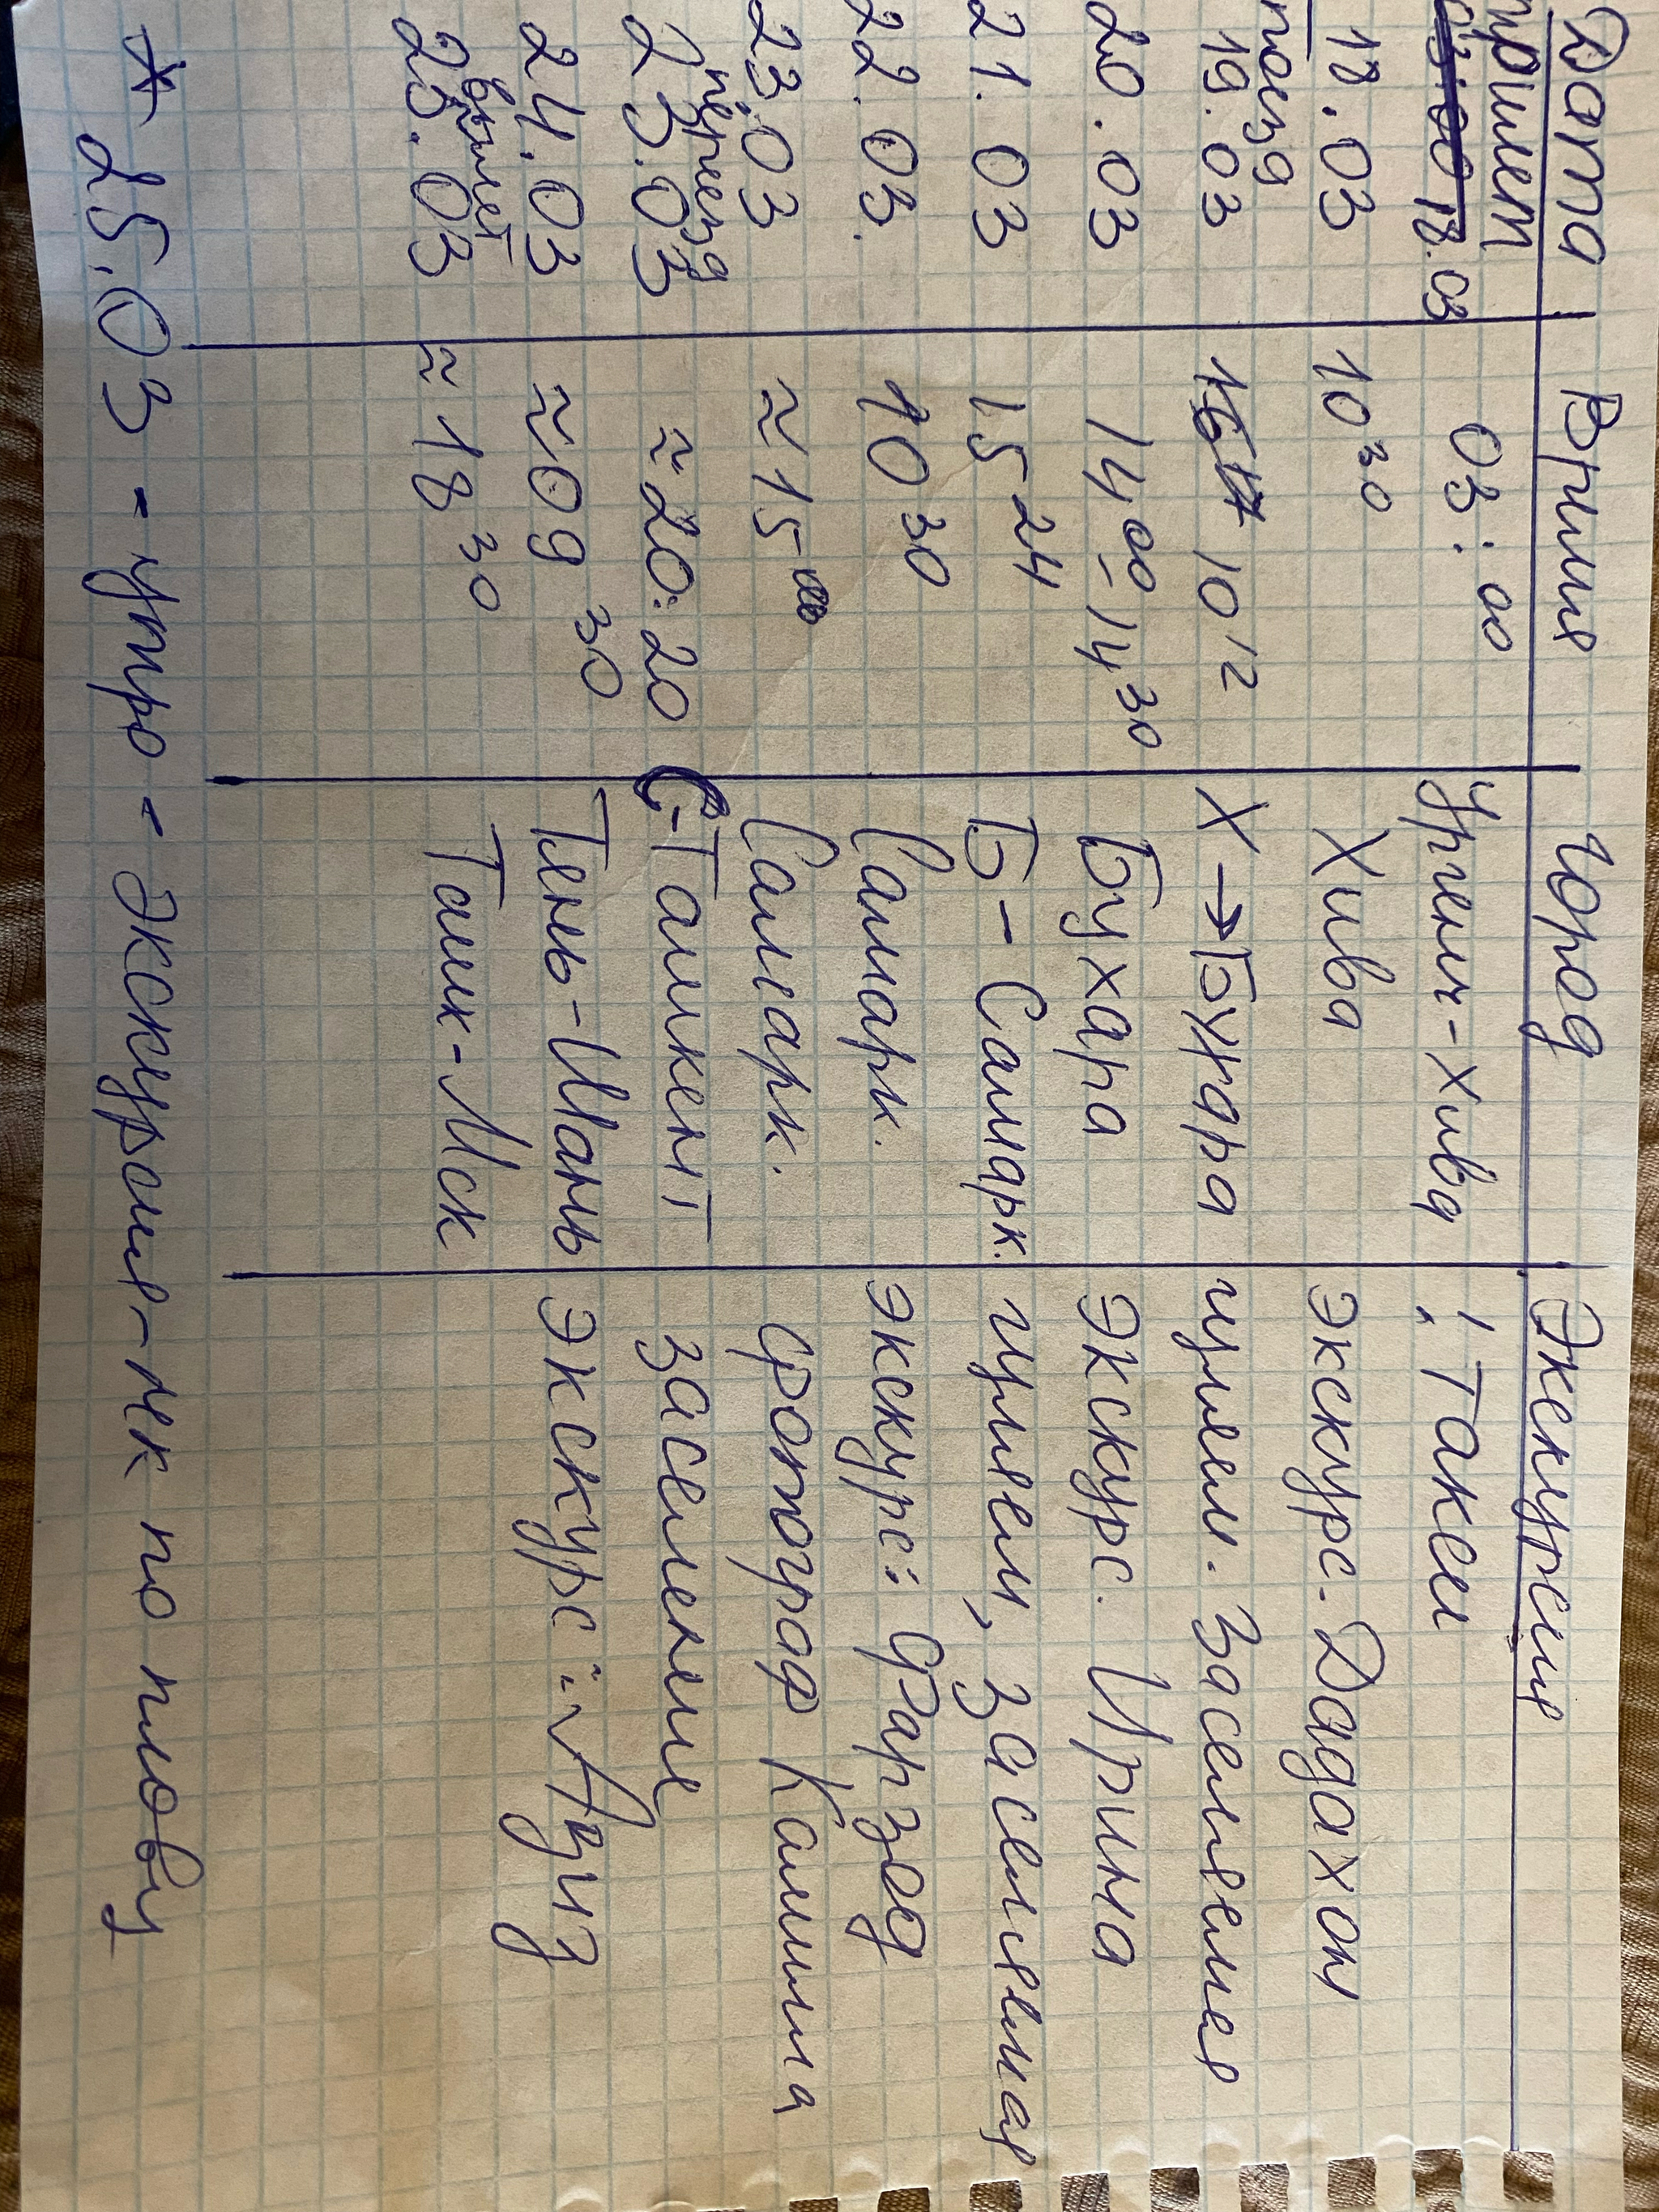 Дата Время Город Экскурсия
прилет
18.03 03:00 Ургенч-Хива ! Такси
18.03 10 30 Хива экскурс. Дадахон
поезд
19.03 10 12 Х→Бухара гуляем. Заселение
20.03 14 00-14 30 Бухара Экскурс. Ирина
21.03 15 24 Б-Самарк. гуляем, заселение
22.03. 10 30 Самарк. экскурс: Фарзод
23.03 ≈15 00 Самарк. фотограф Камила
переезд
23.03 ≈20:20 С-Ташкент заселение
24.03 ≈09 30 Тянь-Шань экскурс: Азиз
вылет
25.03 ≈18 30 Ташк-Мск
* 25.03 - утро - Экскурсия-лек по плову